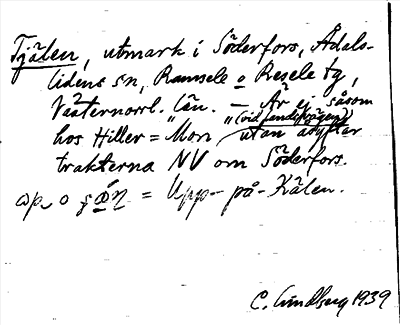 Tjälen, utmark i Söderfors, Ådals-
lidens sn, Ramsele o Resele tg,
Västernorrl. län. — Är ej såsom
(vid landsvägen)
hos Hiller = "Mon" utan asyftar
trakterna NV om Söderfors.
= Upp-på-Kälen.
C. Lindberg 1939